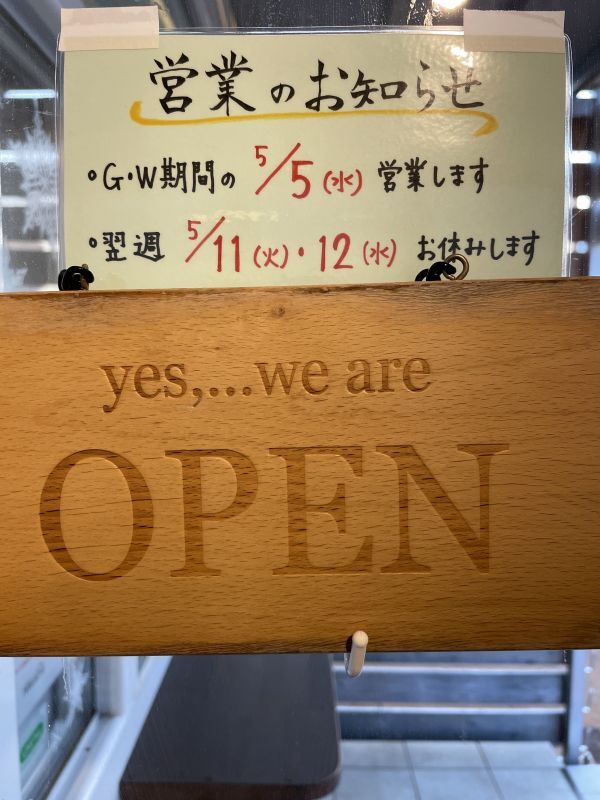 営業のお知らせ
•G・W期間の 5/5(水) 営業します
•翌週 5/11(火)・12(水) お休みします
yes,...we are
OPEN